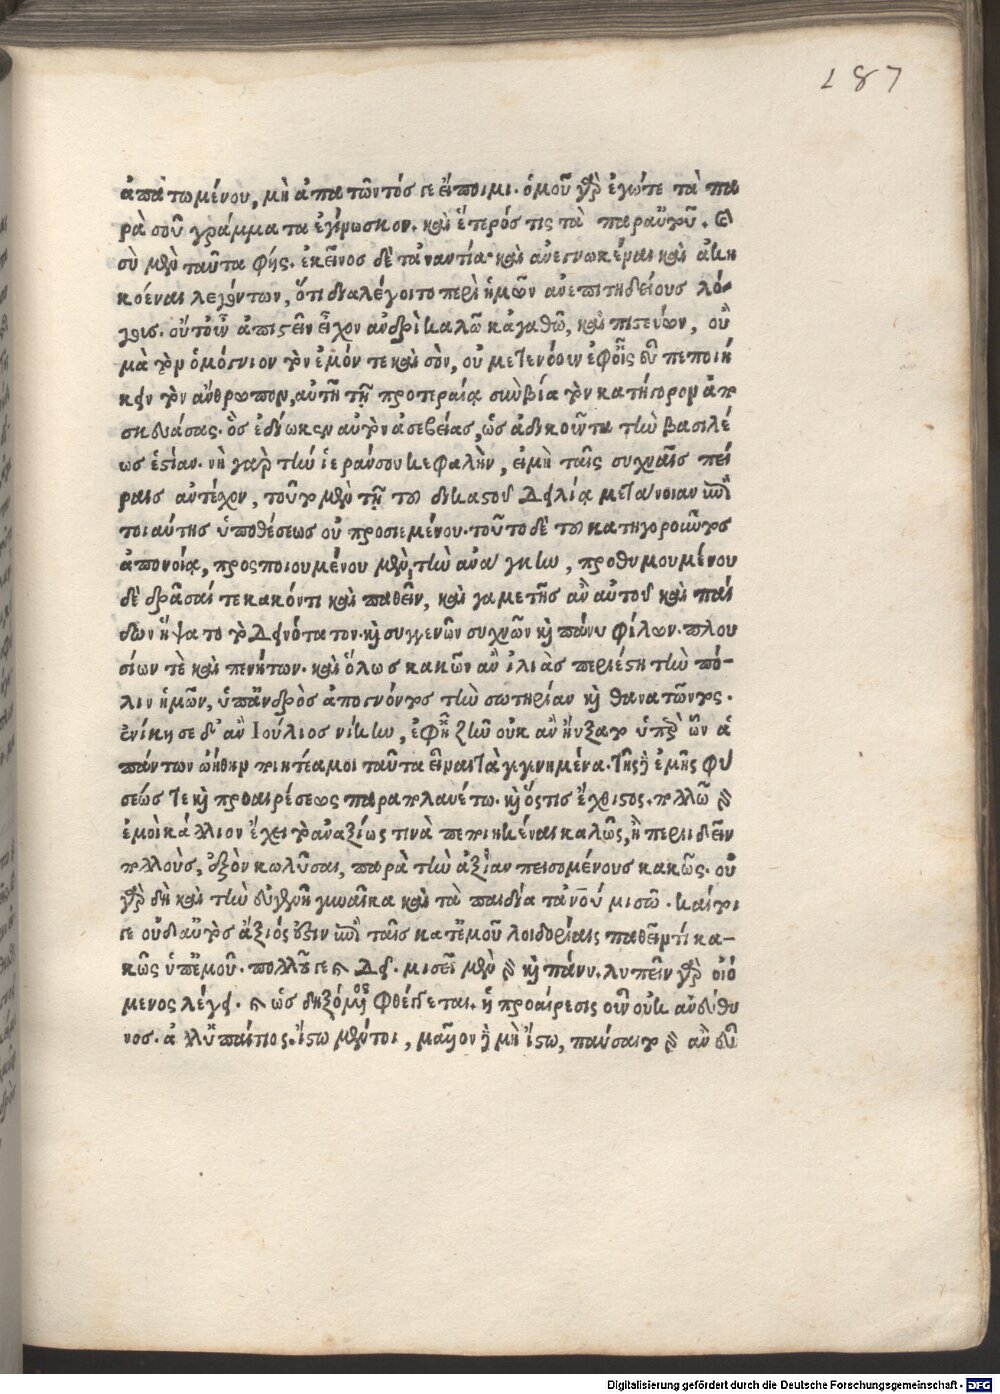 187
ἀπατωμένου, μὴ ἀπατῶντός σε εἴποιμι. ὁμοῦ γὰρ ἐγώτε τὰ πα
ρὰ σοῦ γράμματα ἐγίνωσκον. καὶ ἕτερός τις τὰ παραὐτοῦ.
σὺ μὲν ταῦτα φής. ἐκεῖνος δὲ τἀναντία καὶ ἀνεγνωκέναι καὶ ἀκη
κοέναι λεγόντων, ὅτι διαλέγοιτο περὶ ἡμῶν ἀνεπιτηδείους λό-
γοις. οὔτοιν ἀπιστεῖν εἶχον ἀνδρὶ καλῶ κἀγαθῶ, καὶ πιστεύων, οὐ
μὰ τὸν ὁμόγνιον τὸν ἐμόν τε καὶ σὸν, οὐ μετενόουν ἐφοἷς εὖ πεποιή
κειν τὸν ἄνθρωπον, αὐτῆ τῆ προτεραία σὺν βία τὸν κατήγορον
σκεδιάσας. ὃς ἐδίωκεν αὐτὸν ἀσεβείας, ὡς ἀδικοῦντα τὴν βασιλέ
ως ἑστίαν. νὴ γὰρ τὴν ἱεράν σου κεφαλὴν, εἰμὴ ταῖς συχναῖς πεί
ραις ἀντέχον, τοῦτο μὲν τῆ του δικαστοῦ δειλία μετάνοιαν ἐπὶ
τοιαύτης ὑποθέσεως οὐ προσιεμένου. τοῦτο δὲ του κατηγοροῦντος
ἀπονοία, προσποιουμένου μὲν, τὴν ἀνάγκην, προθυμουμένου
δὲ δρᾶσαί τε κακόν τι καὶ παθεῖν, καὶ γαμετῆς ἂν αὐτοῦ καὶ παί
δων ἥψατο τὸ δεινότατον. καὶ συγγενῶν συχνῶν καὶ πάνυ φίλων. πλου
σίων τὲ καὶ πενήτων. καὶ ὅλως κακῶν ἂν ἰλιὰς περιέστη τὴν πό-
λιν ἡμῶν, ὑπἀνδρὸς ἀπογνόντος τὴν σωτηρίαν καὶ θανατῶντος.
ἐνίκησε δ' ἂν Ἰούλιος νίκην, ἐφῆ ζῆν οὐκ ἂν ηὐξατο ὑπὲρ ὧν ἁ
πάντων ᾠήθην τιητέα μοι ταῦτα εἶναι τὰ γιγνημένα. τῆς δὲ ἐμῆς φύ
σεώς τε καὶ προαιρέσεως παραπλαυέτω. καὶ ὅςτις ἔχθιστος. πολλῶ δὲ
ἐμοὶ κάλλιον ἔχει τὸ ἀναξίως τινὰ πεποιηκέναι καλῶς, ἢ περιιδεῖν
πολλοὺς, ἐξὸν κωλῦσαι, παρὰ τὴν ἀξίαν πεισομένους κακῶς. οὐ
γὰρ δὴ καὶ τὴν εὐγενῆ γυναῖκα καὶ τὰ παιδία τἀνοῦ μισῶ. καίτοι
γε οὐδαὐτὸς ἄξιός ἐστιν ἐπὶ ταῖς κατ' ἐμοῦ λοιδορίαις παθεῖν τι κα-
κῶς ὑπ' ἐμοῦ. πολλοῦ γε καὶ δεῖ. μισεῖ μὲν δὲ καὶ πάνυ. λυπεῖν γὰρ οἰό
μενος λέγει. καὶ ὡς δηξόμενος φθέγγεται. ἡ προαίρεσις οὖν οὐκ ἀνεύθυ
νος. ἀλλ' ὑπαίτιος. ἴστω μέντοι, μᾶλλον δὲ μὴ ἴστω, παύσαιτο δὲ ἂν εὖ
Digitalisierung gefördert durch die Deutsche Forschungsgemeinschaft - DFG